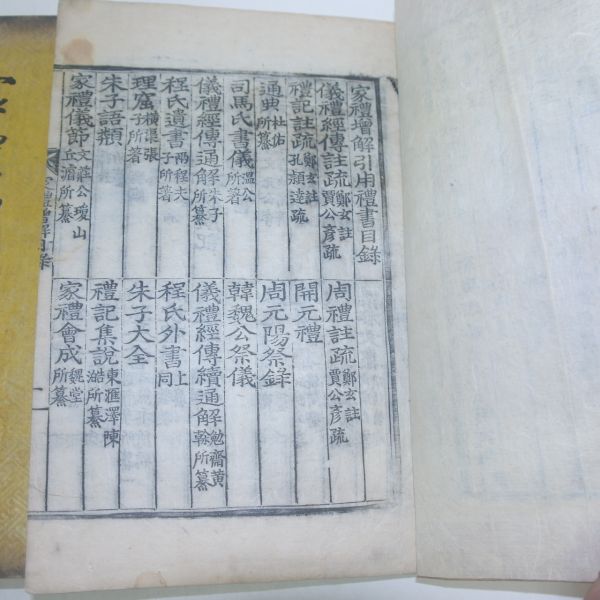 家禮增解引用禮書目錄
儀禮經傳註疏 鄭玄註 賈公彥疏
周禮註疏 鄭玄註 賈公彥疏
禮記註疏 鄭玄註 孔穎達疏
開元禮
通典 杜佑所纂
周元陽祭錄
司馬氏書儀 溫公所著
韓魏公祭儀
儀禮經傳通解 朱子所纂
儀禮經傳續通解 勉齋黃榦所纂
程氏遺書 兩程夫子所著
程氏外書 同上
理窟 橫渠張子所著
朱子大全
朱子語類
禮記集說 東匯澤陳澔所纂
家禮儀節 文莊公瓊山丘濬所纂
家禮會成 魏堂所纂
家禮增解目錄
一